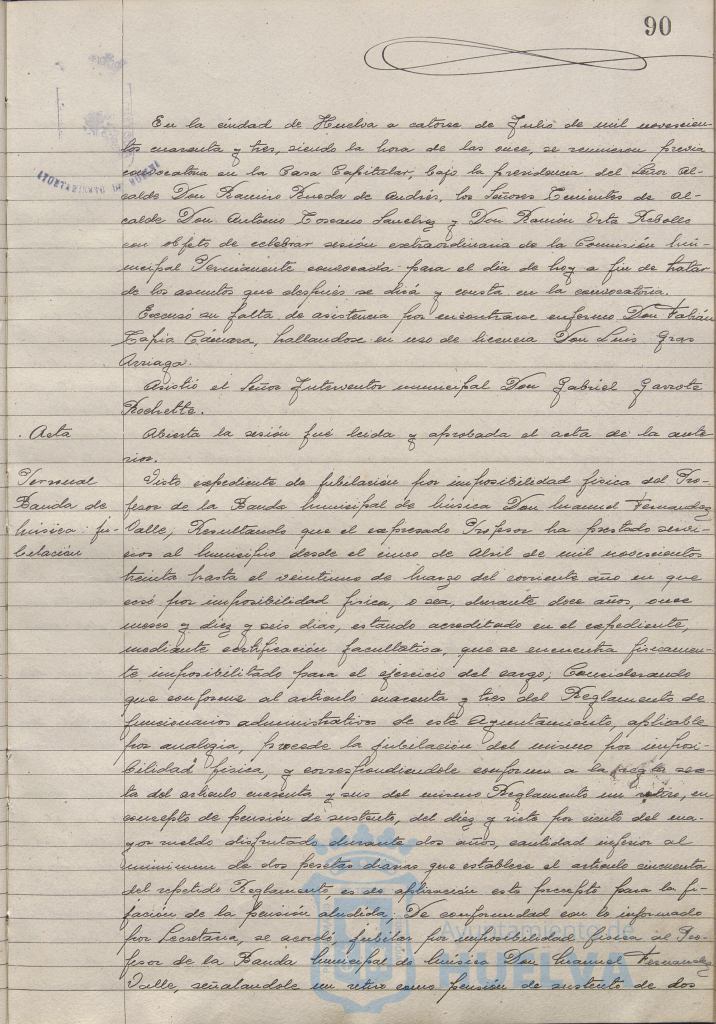 90
En la ciudad de Huelva a catorse de Julio de mil novescien-
tos cuarenta y tres, siendo la hora de las once, se reunieron previa
convocatoria en la Casa Capitular, bajo la presidencia del Señor Al-
calde Don Ramiro Pineda de Andrés, los Señores Tenientes de Al-
calde Don Antonio Toscano Sanchez y Don Ramón Orta Rebollo
con objeto de celebrar sesión extraordinaria de la Comisión Mu-
nicipal Permanente convocada para el dia de hoy a fin de tratar
de los asuntos que después se dirá y consta en la convocatoria.
Excusó su falta de asistencia por encontrarse enfermo Don Fabián
Tapia Cámara, hallandose en uso de licencia Don Luis Gras
Arriaga.
Asistió el Señor Interventor municipal Don Gabriel Garrote
Rochette.
Acta
Abierta la sesión fué leida y aprobada el acta de la ante
rior.
Personal
Banda de
Música: ju-
bilación
Visto expediente de jubilación por imposibilidad física del Pro-
fesor de la Banda Municipal de Música Don Manuel Fernandez
Valle, Resultando que el expresado Profesor ha prestado servi-
cios al Municipio desde el cinco de Abril de mil novescientos
treinta hasta el veintiuno de Marzo del corriente año en que
cesó por imposibilidad física, o sea, durante doce años, once
meses y diez y seis dias, estando acreditado en el expediente,
mediante certificación facultativa, que se encuentra fisicamen-
te imposibilitado para el ejercicio del cargo; Considerando
que conforme al articulo cuarenta y tres del Reglamento de
funcionarios administrativos de este Ayuntamiento, aplicable
por analogia, procede la jubilación del mismo por imposi-
bilidad física, y correspondiendole conforme a la regla sex-
ta del articulo cuarenta y seis del mismo Reglamento un retiro, en
concepto de pensión de sustento, del diez y siete por ciento del ma-
yor sueldo disfrutado durante dos años, cantidad inferior al
minimum de dos pesetas diarias que establece el articulo cincuenta
del repetido Reglamento, es de aplicación este precepto para la fi-
jación de la pensión aludida, De conformidad con lo informado
por Secretaria, se acordó, jubilar por imposibilidad física al Pro-
fesor de la Banda Municipal de Música Don Manuel Fernandez
Valle, señalandole un retiro como pensión de sustento de dos
Ayuntamiento de
HUELVA